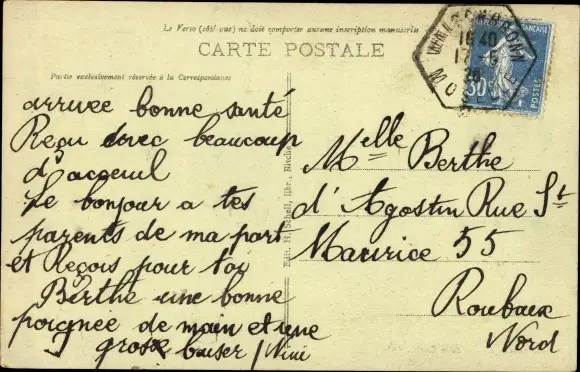 Le Verso (côté vue) ne doit comporter aucune inscription manuscrite
CARTE POSTALE
Partie exclusivement réservée à la Correspondance
arrivée bonne santé
Reçu avec beaucoup
d'acceuil
Le bonjour a tes
parents de ma part
et Reçois pour toi
Berthe une bonne
poignée de main et une
grosse baiser Nini
Edit. H. Schell, libr., Bitche
Melle Berthe
d'Agostin Rue St
Maurice 55
Roubaix
Nord
16 40
30
POSTES